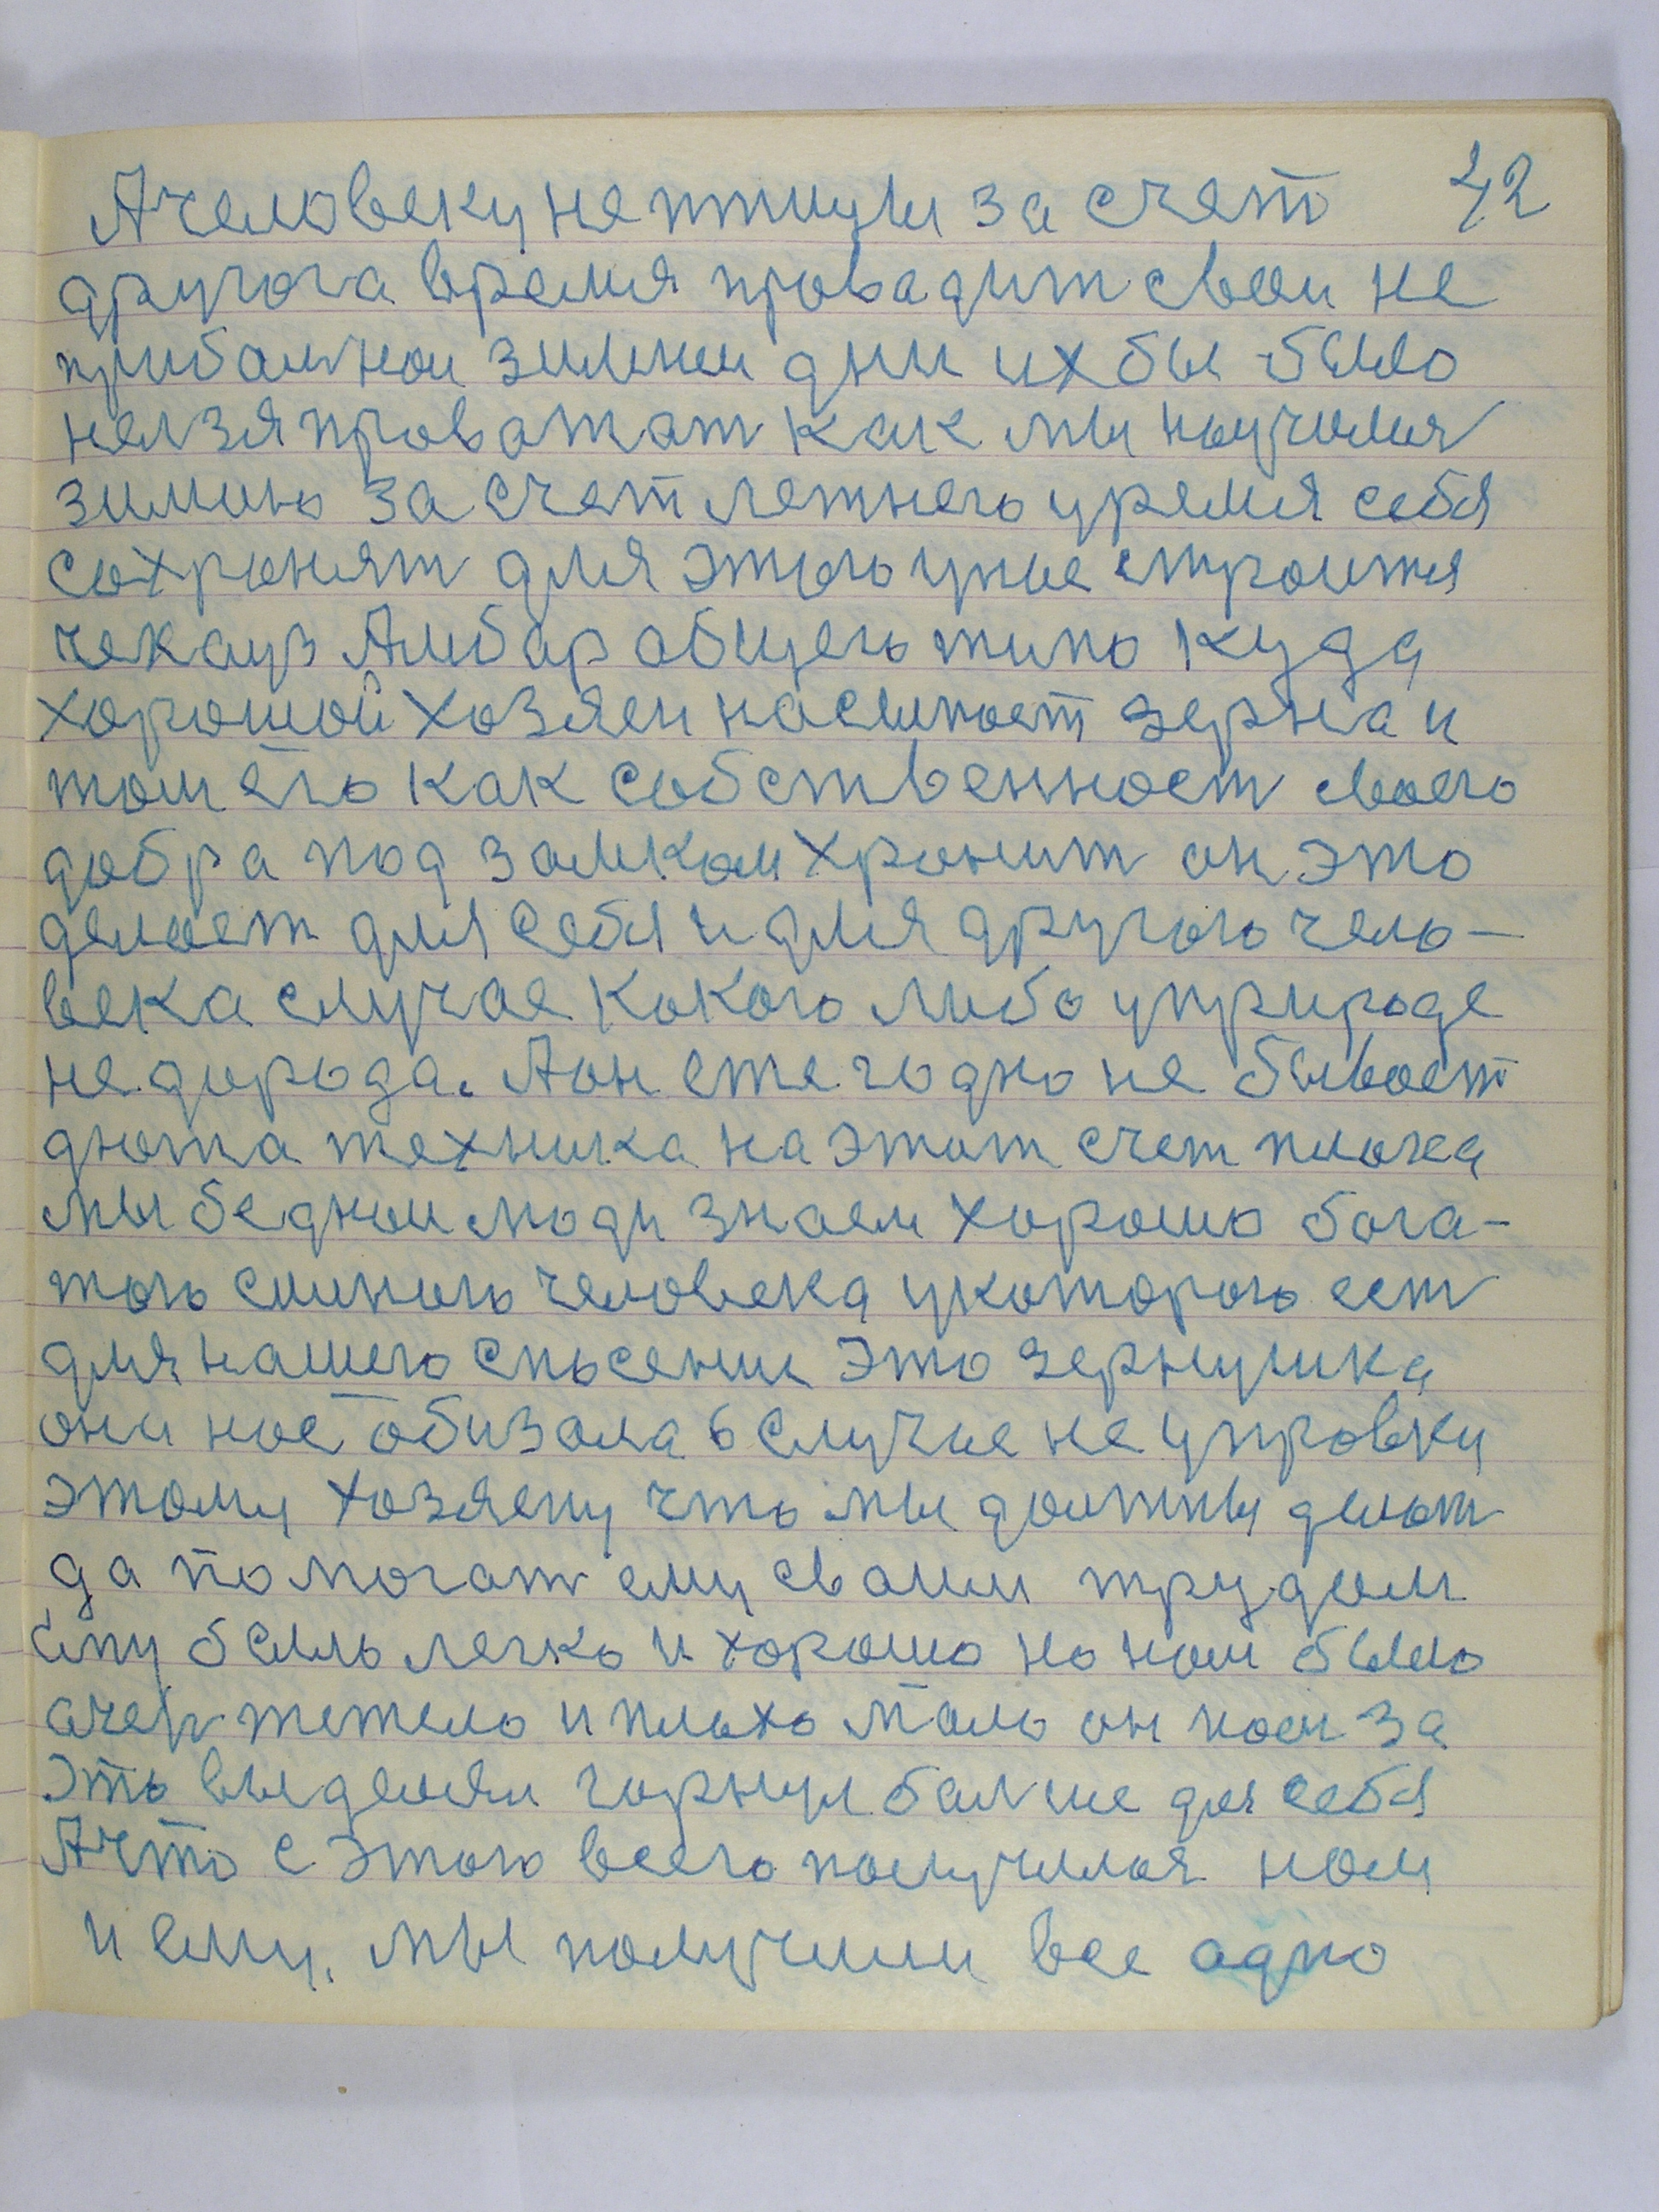 42
А человеку не птицы за счет
другога время провадит свои не
прибольнои зимнеи дни их бы было
нелзя проватат как мы научился
зимою за счет летнего уремя себя
сохронят для этого уние строится
чекауз Амбар общего типо куда
хорошой хозяен насыпоет зерна и
том его как собственност своего
добра под замком хронит он это
делоет для себя и для другого чело-
века случае кокого либо уприроде
не дорода. А он етегодно не бывоет
дюта техника на этот счет плоха
мы беднои люди знаем хорошо бога-
того силного человека укоторого ест
для нашего спосении это зернушка
они нас обизала в случае не управки
этому хозяену что мы долтны делот
да помогат ему своим трудом
ему было легко и хорошо но ном было
очен тетело и плохо мало он ном за
это выделял горнул болше для себя
А что с этого всего получилоя ном
и ему. мы получили все одно